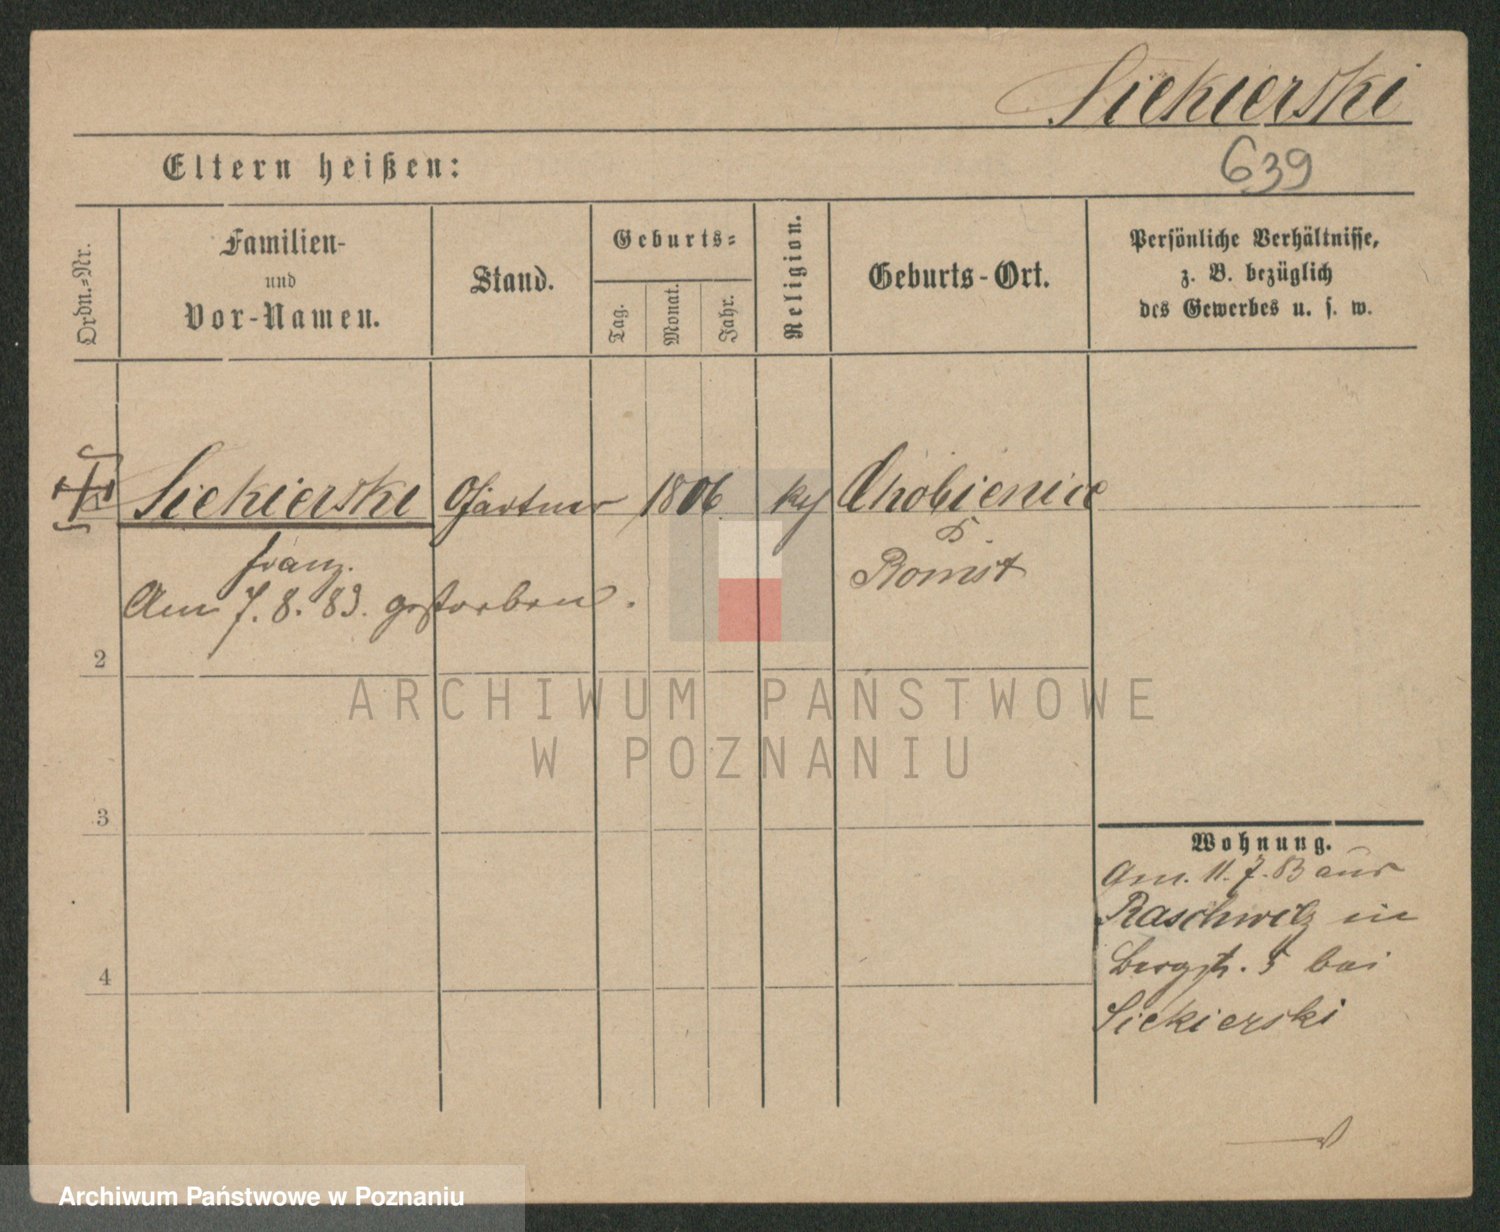 Siekierski
639
Eltern heißen:
Ordn.=Nr.
Familien-
und
Vor-Namen.
Stand.
Geburts=
Tag.
Monat.
Jahr.
Religion.
Geburts-Ort.
Persönliche Verhältnisse,
z. B. bezüglich
des Gewerbes u. s. w.
Siekierski Gärtner 1806 Chobienice
Franz. Bomst
Am 7. 8. 83. gestorben.
2
3
4
Wohnung.
Am. 11. 7. 83 aus
Raschwitz in
Bergstr. 5 bei
Siekierski
ARCHIWUM PAŃSTWOWE
W POZNANIU
Archiwum Państwowe w Poznaniu